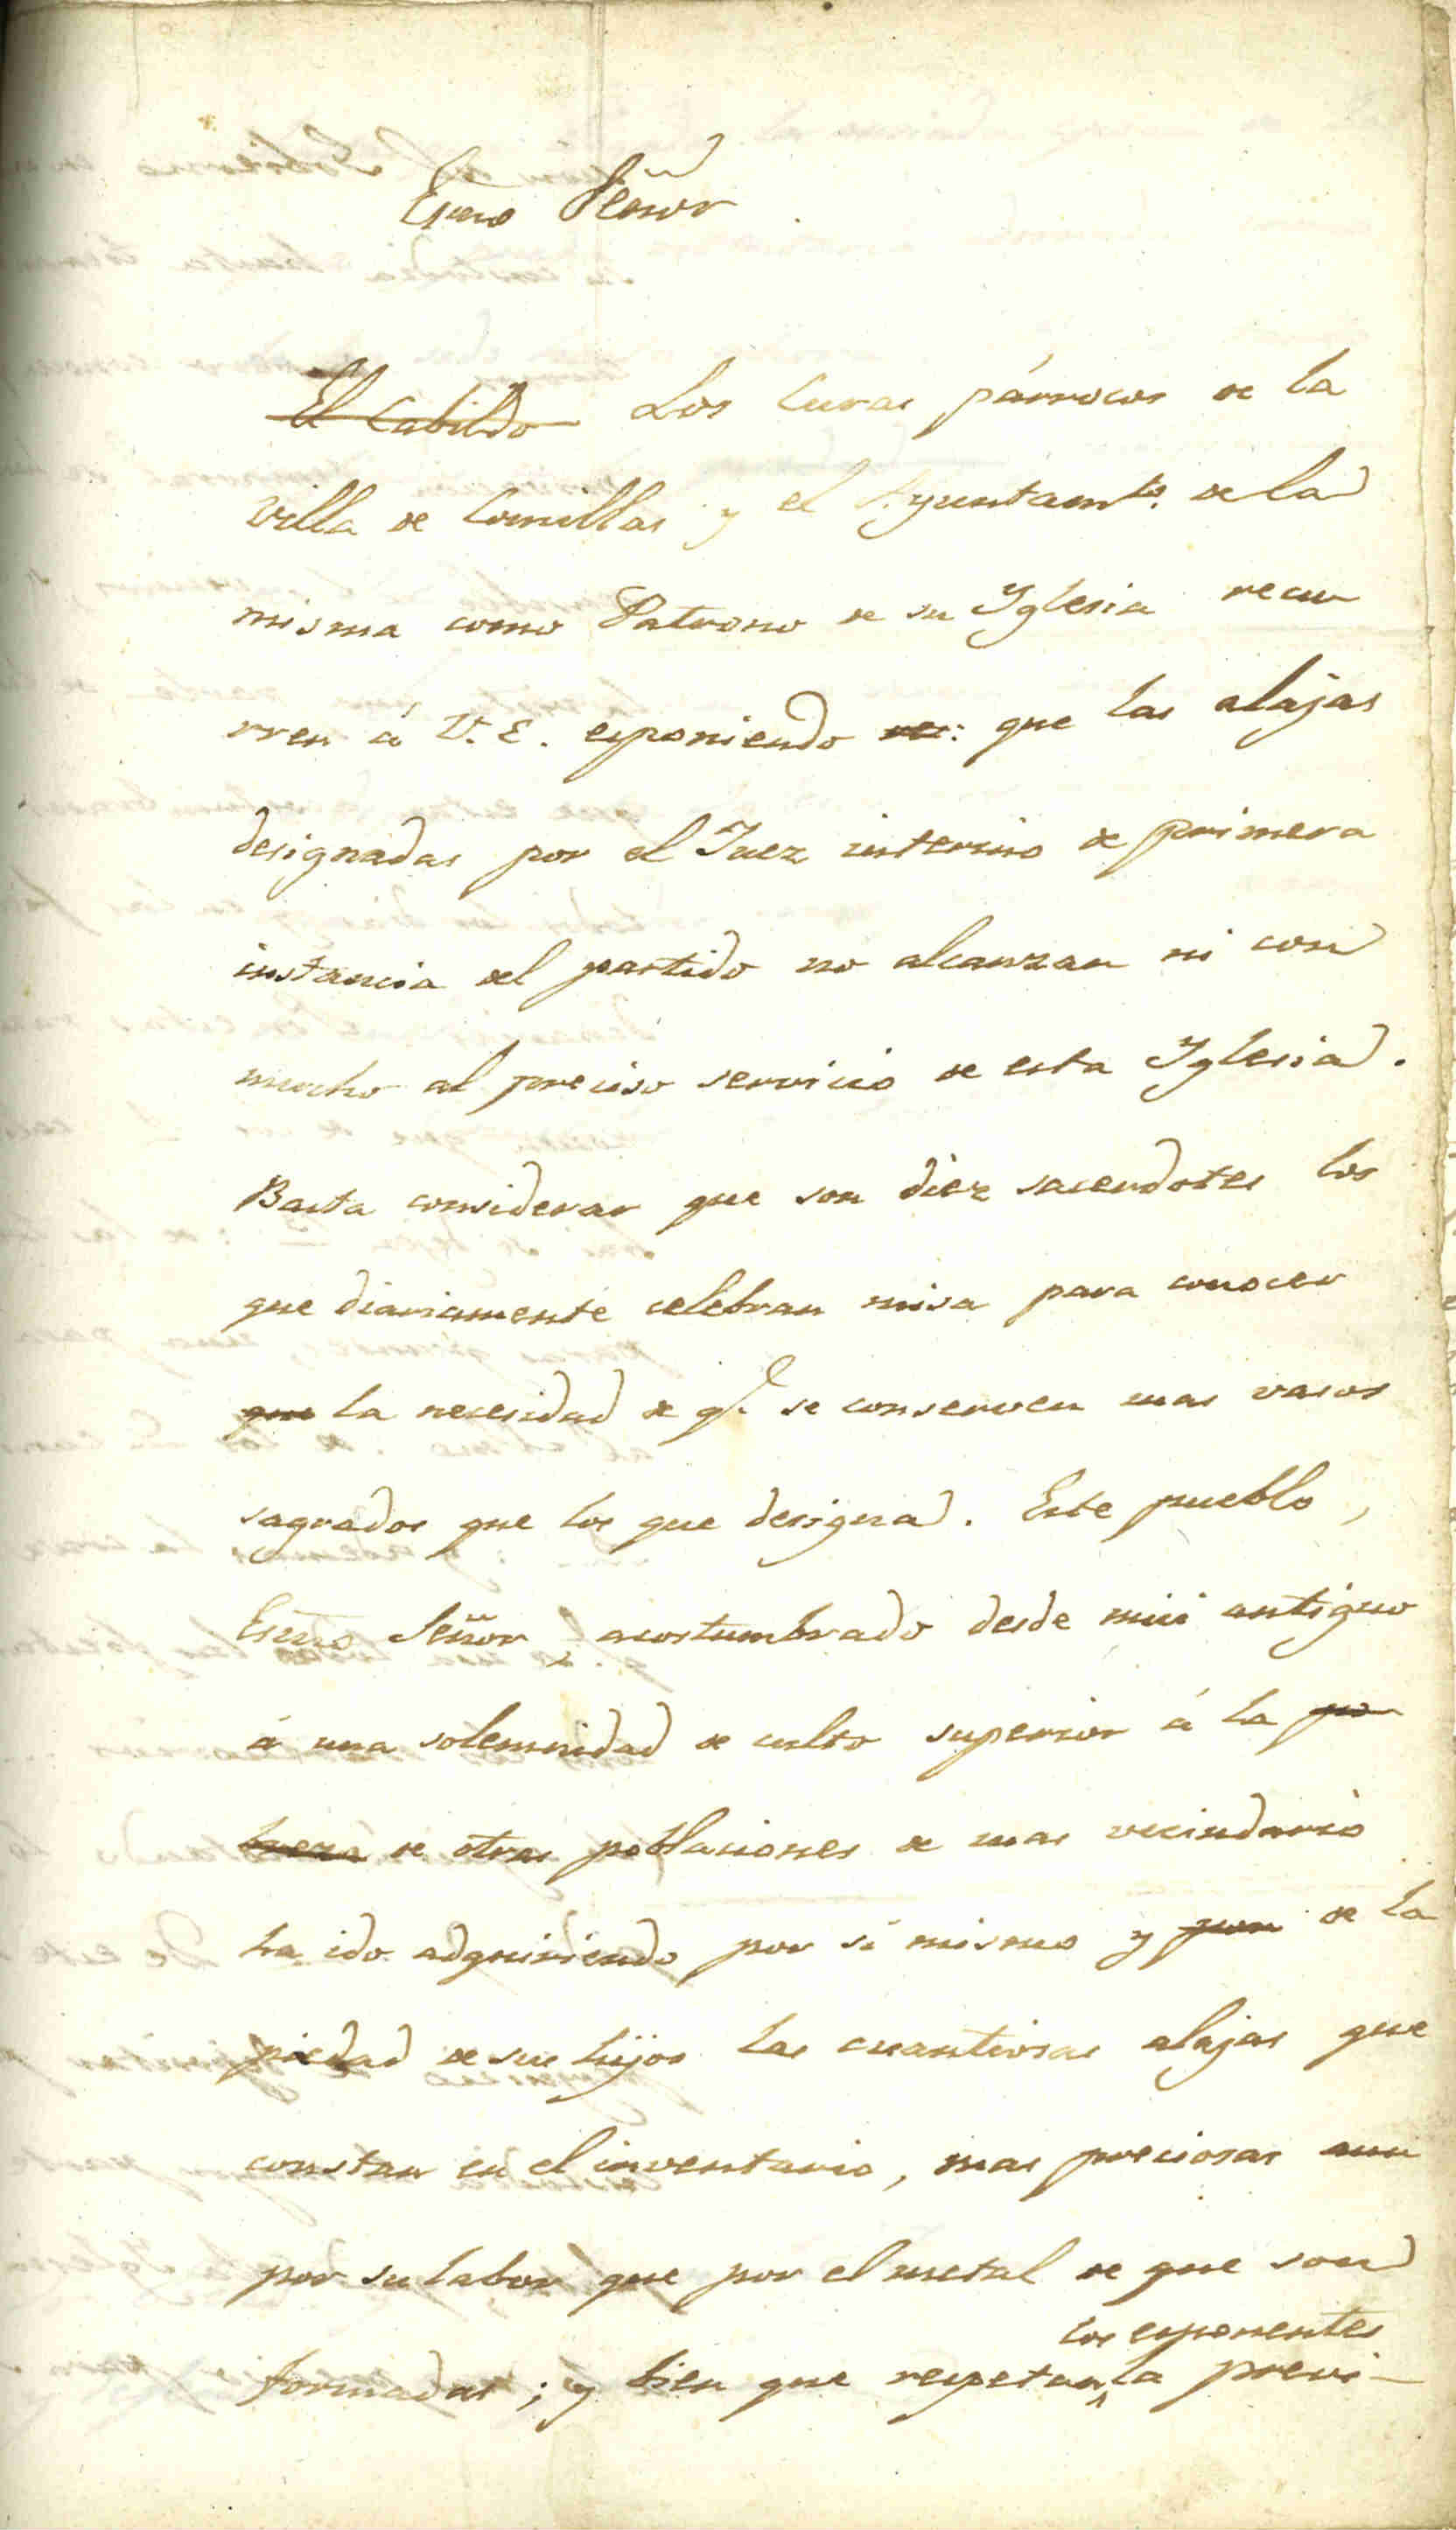 Exmo Señor
El Cabildo Los Curas párrocos de la
Villa de Comillas y el Ayuntamto. de la
misma como Patrono de su Yglesia recu
rren á V. E. esponiendo que las alajas
designadas por el Juez interino de primera
instancia del partido no alcanzan ni con
mucho al preciso servicio de esta Yglesia.
Basta considerar que son diez sacerdotes los
que diariamente celebran misa para conocer
que la necesidad de q.e se conserven mas vasos
sagrados que los que designa. Este pueblo,
Exmo Señor, acostumbrado desde mui antiguo
á una solemnidad de culto superior á la po
breza de otras poblaciones de mas vecindario
ha ido adquiriendo por sí mismo y por de la
piedad de sus hijos las cuantiosas alajas que
constan en el inventario, mas preciosas aun
por su labor que por el metal de que son
los esponentes
formadas; y bien que respetan la previ-